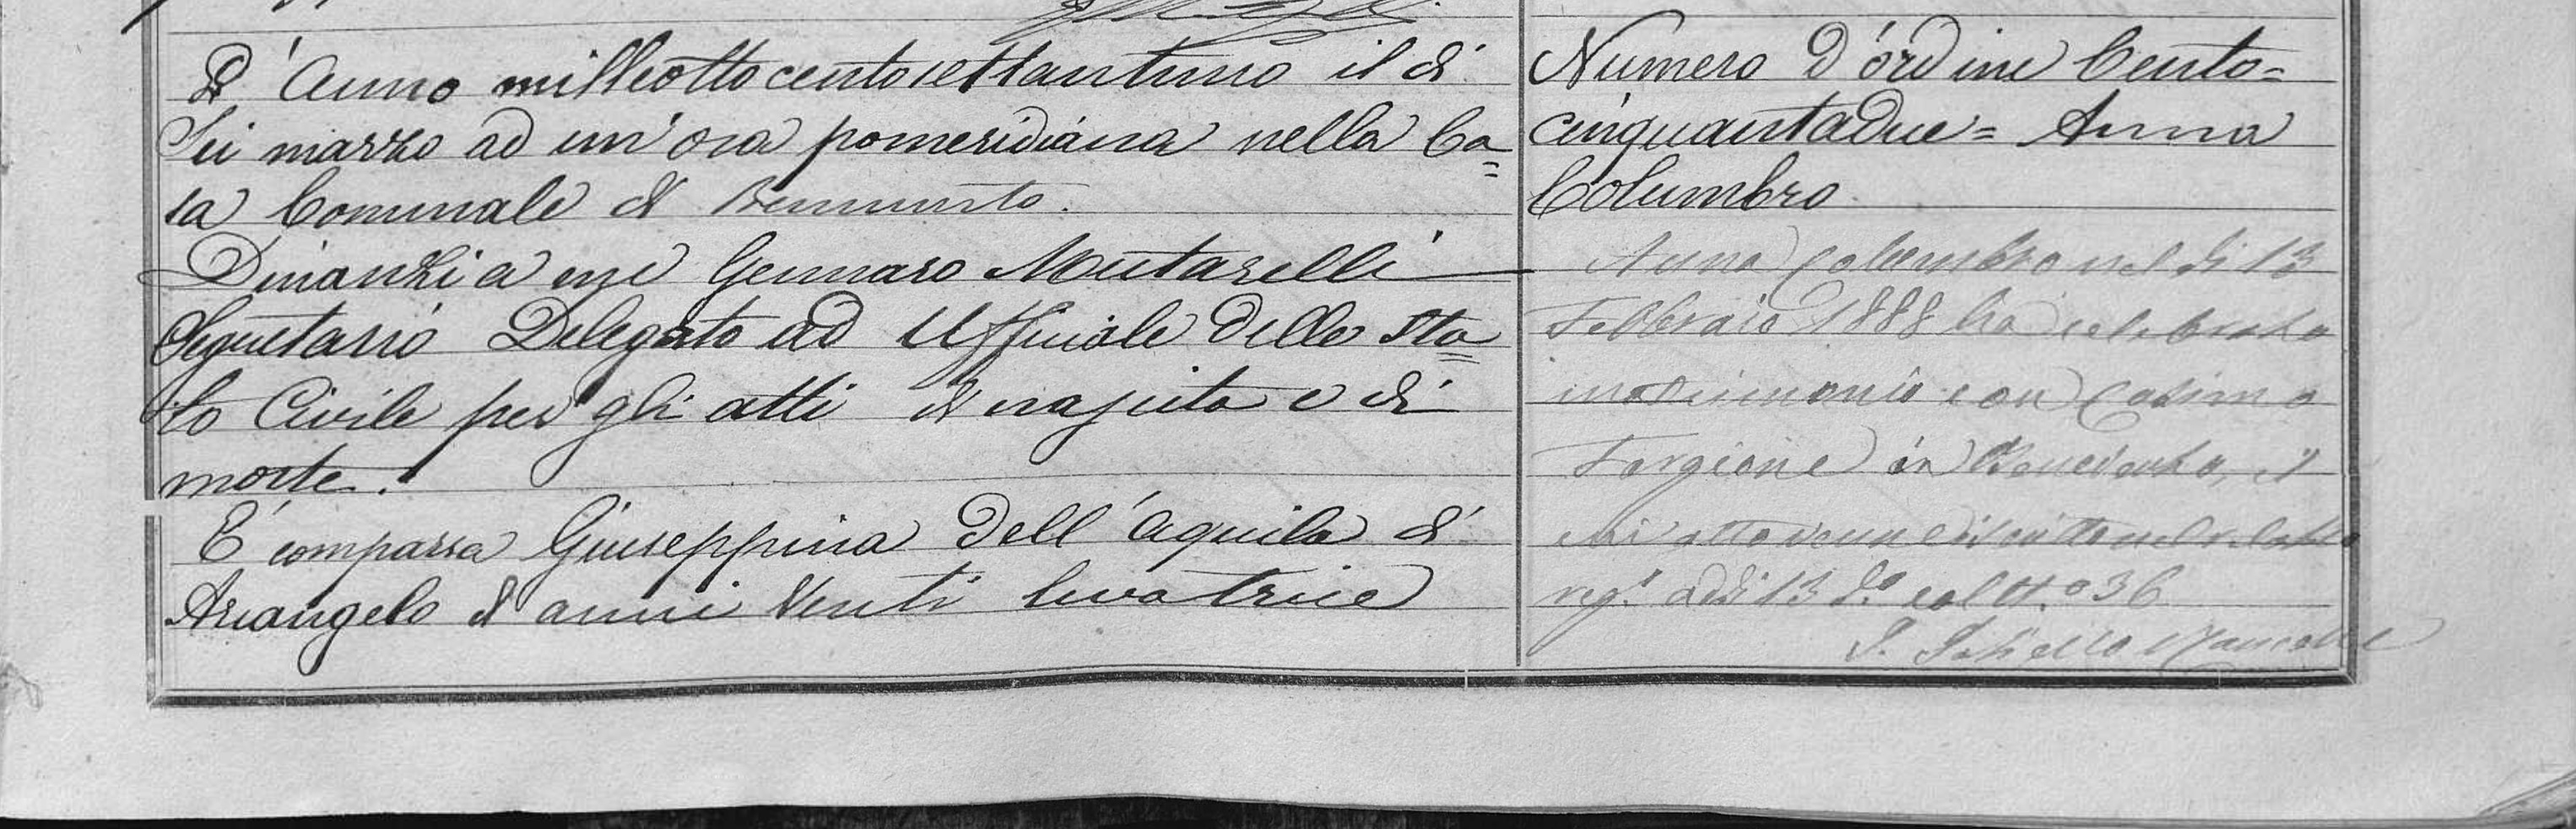 L'Anno milleottocentosettantuno il dì
Sei marzo ad un'ora pomeridiana nella Ca=
sa Comunale di Benevento.
Dinanzi a me Gennaro Mutarelli
Segretario Delegato ad Uffiziale dello Sta=
to Civile per gli atti di nascita e di
morte.
È comparsa Giuseppina Dell'Aquila di
Arcangelo di anni Venti levatrice
Numero D'ordine Cento=
cinquantadue= Anna
Columbro
Anna Columbro nel dì 13
Febbraio 1888 ha celebrato
matrimonio con Cosimo
Forgione in Benevento, il
cui atto venne iscritto nel relativo
reg.º addì 13 d.º col N.º 36